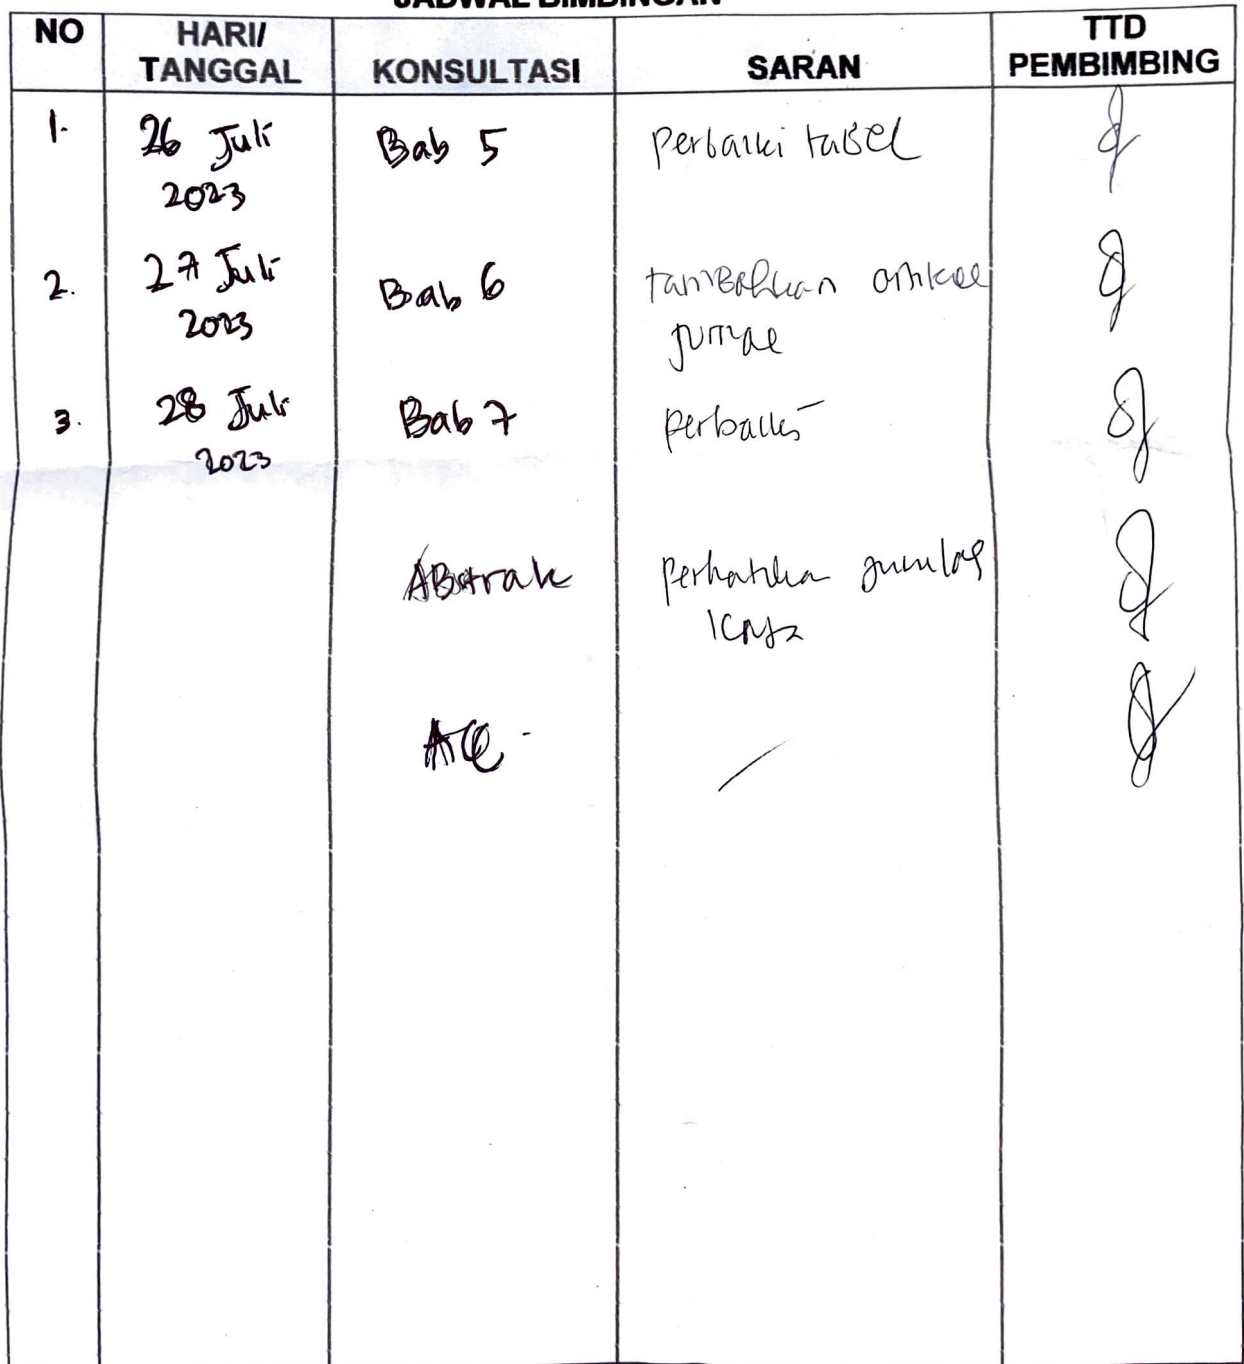 JADWAL BIMBINGAN
NO HARI/ TANGGAL KONSULTASI SARAN TTD PEMBIMBING
1. 26 Juli Bab 5 perbaiki tabel
2023
2. 27 Juli Bab 6 tambahkan artikel
2023 jurnal
3. 28 Juli Bab 7 perbaiki
2023
ABstrak perhatika jumlah
kata
Acc